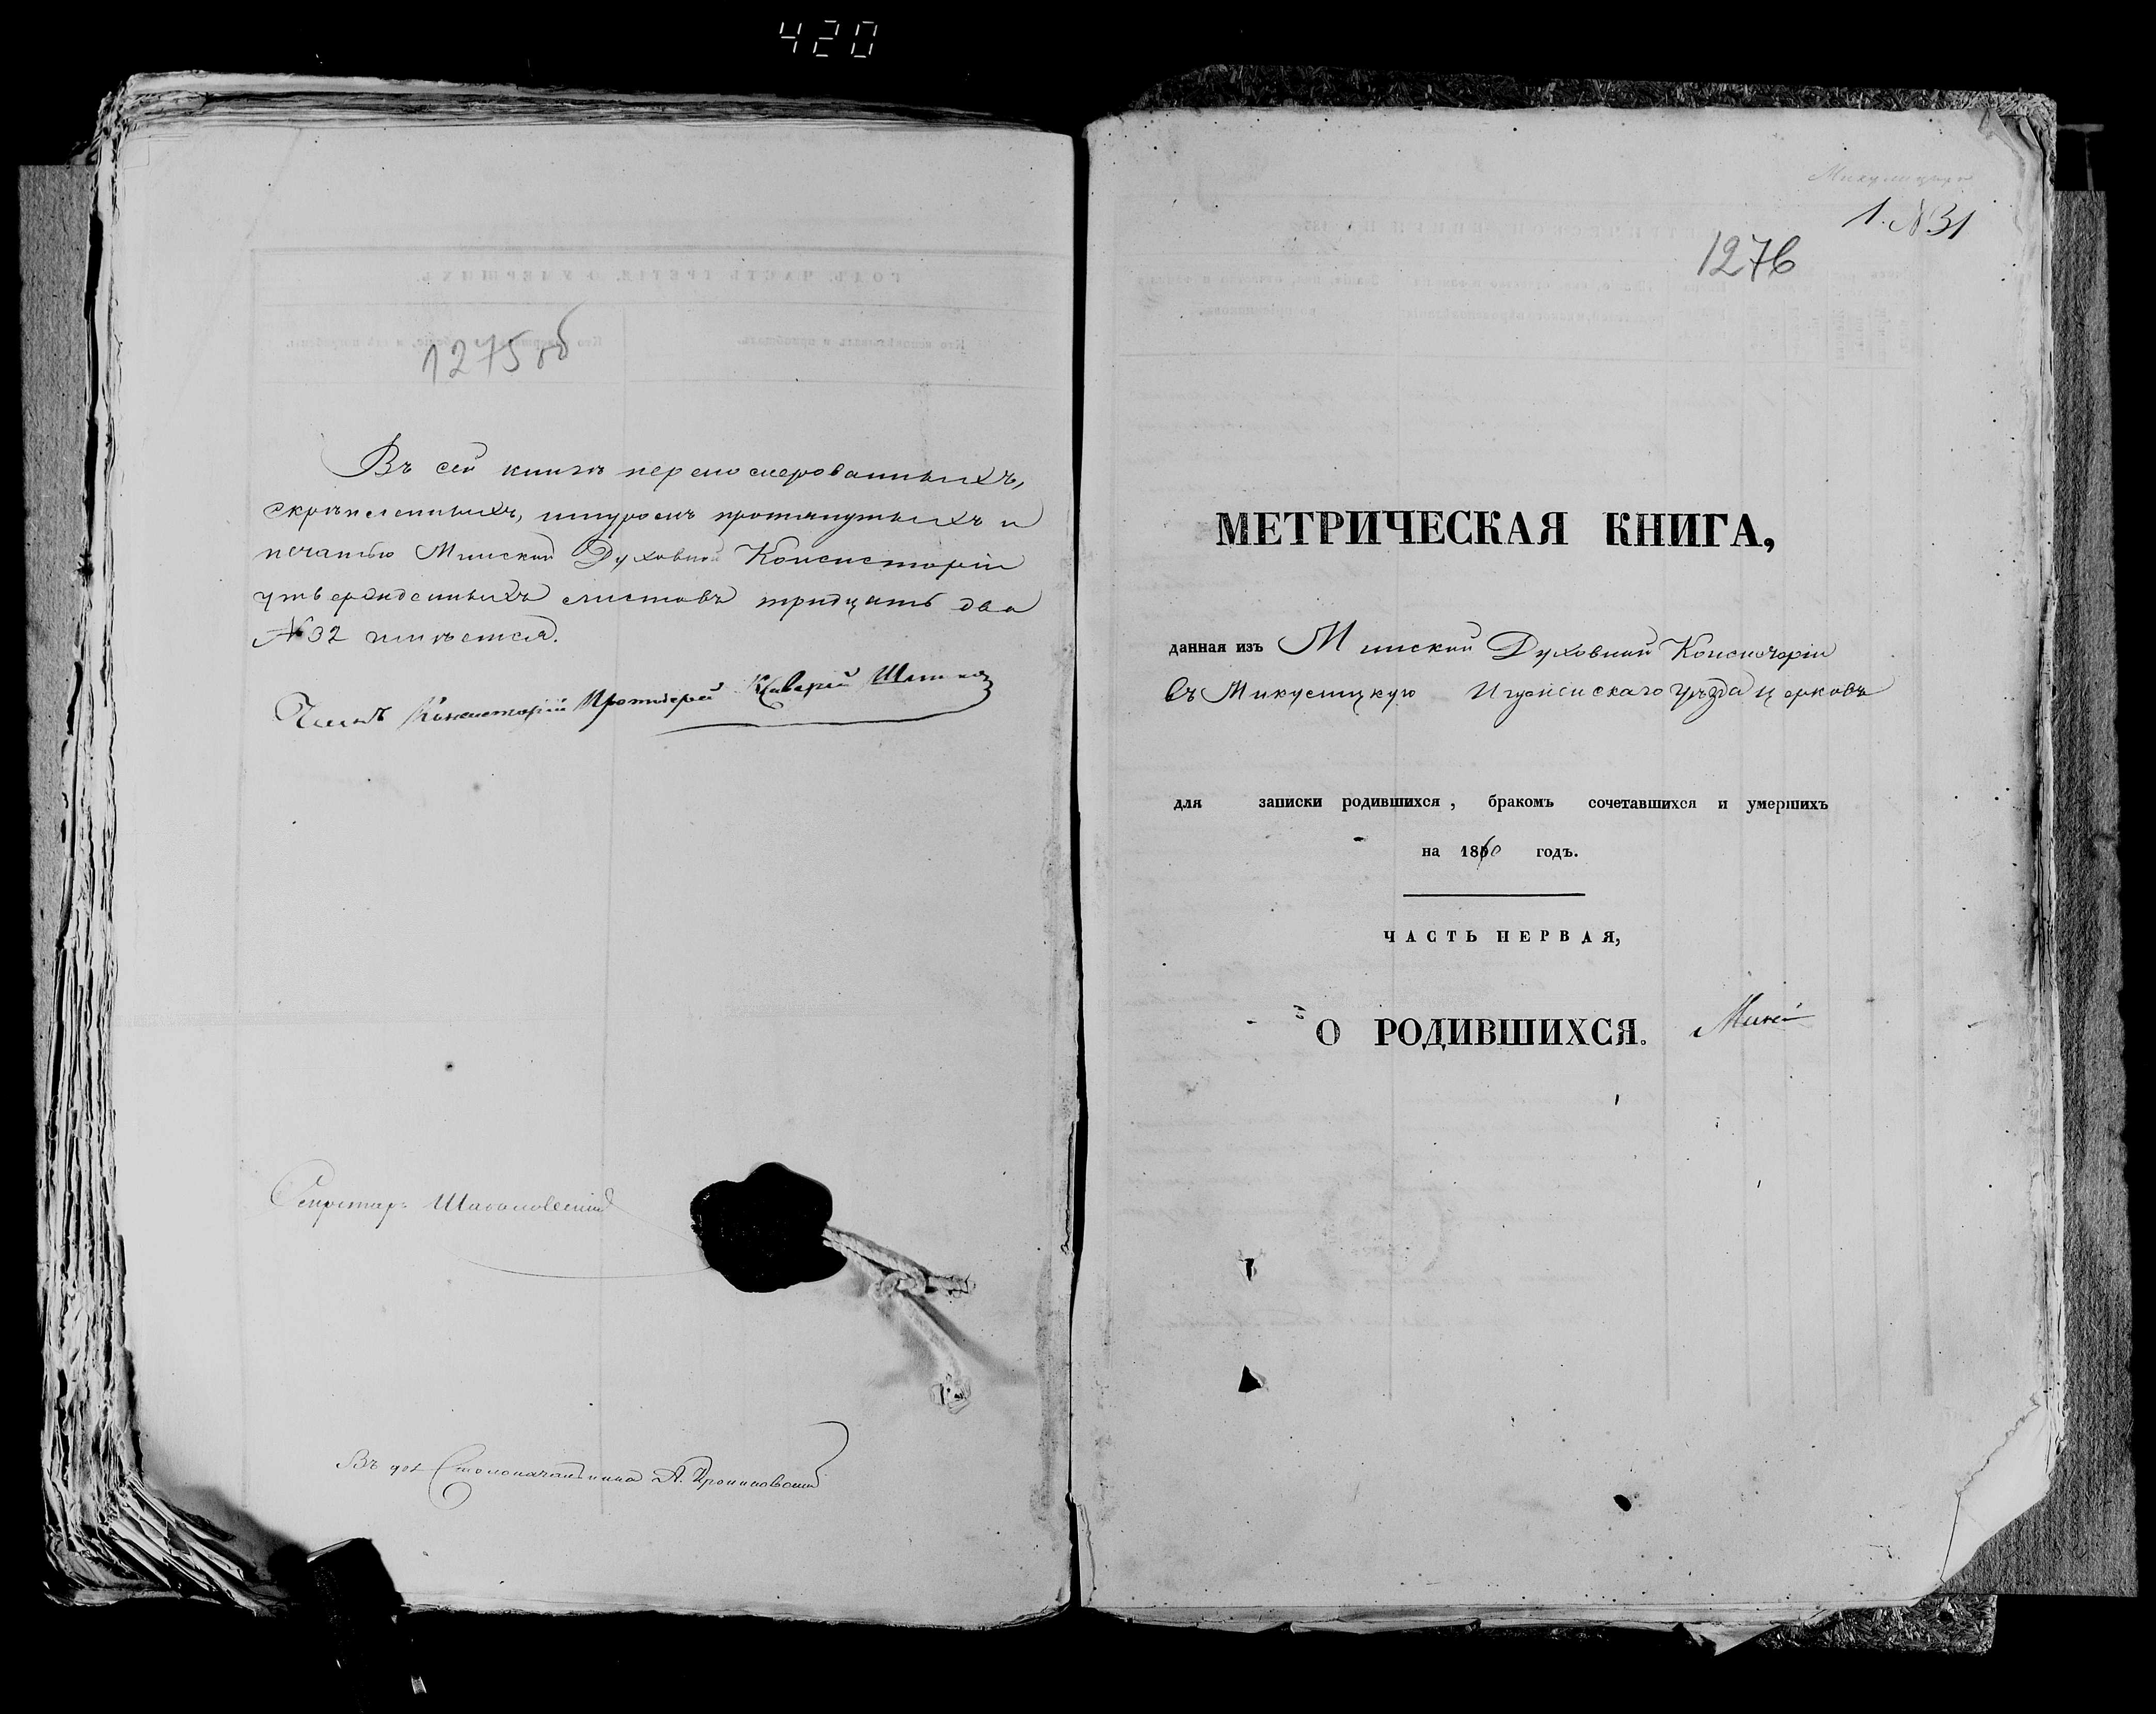 420
1275об
Въ сей книгѣ перенумерованныхъ,
скрѣпленныхъ, шнуромъ протянутыхъ и
печатью Минской Духовной Консисторіи
утвержденныхъ листовъ тридцать два
№ 32 имѣется.
Членъ Консисторіи Протоіерей
Секретарь
Въ дол Столоначальника А.
1. №31
1276
МЕТРИЧЕСКАЯ КНИГА,
данная изъ Минской Духовной Консисторіи
въ Микулицкую Игуменскаго Уѣзда церковь
для записки родившихся, бракомъ сочетавшихся и умершихъ
на 1860 годъ.
ЧАСТЬ ПЕРВАЯ,
О РОДИВШИХСЯ.